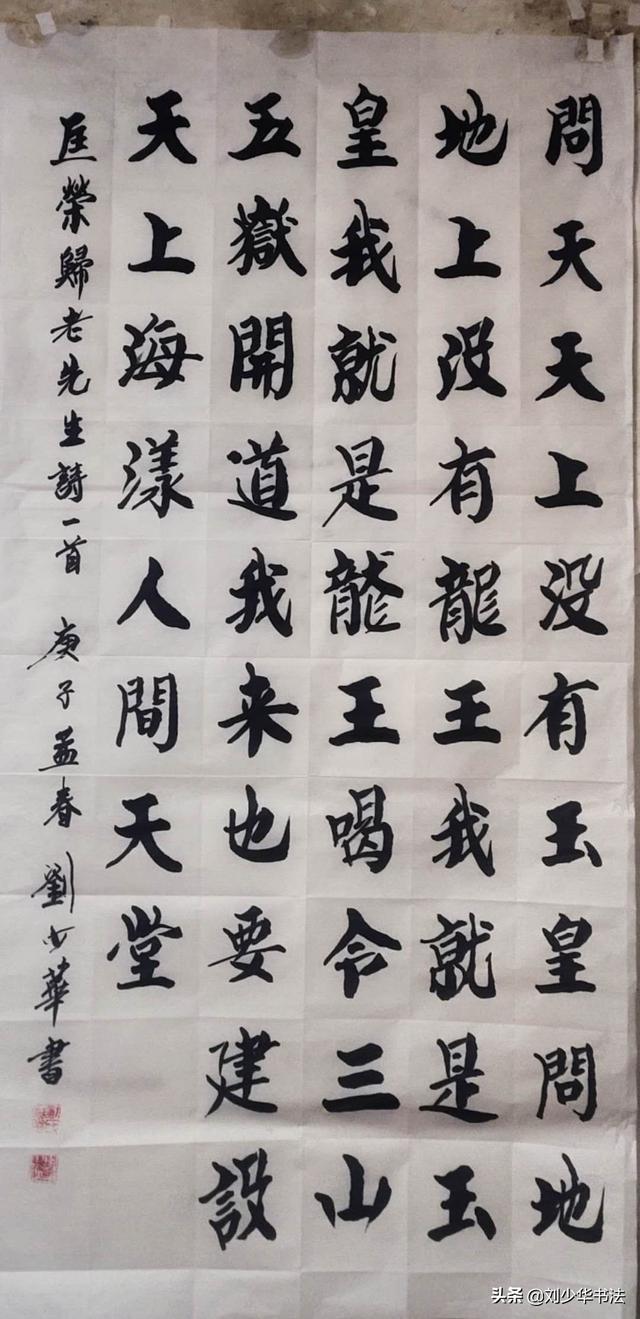 問天天上没有玉皇問地
地上没有龍王我就是玉
皇我就是龍王喝令三山
五嶽開道我来也要建設
天上海漾人間天堂
匡榮歸老先生詩一首 庚子孟春 劉少華書
头条 @刘少华书法